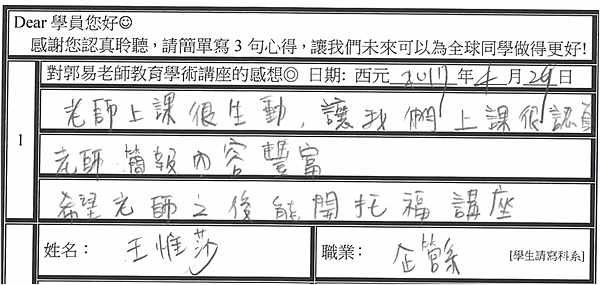 Dear 學員您好☺
感謝您認真聆聽，請簡單寫 3 句心得，讓我們未來可以為全球同學做得更好!
對郭易老師教育學術講座的感想◎ 日期: 西元 2017 年 4 月 29 日
1
老師上課很生動，讓我們上課很認真
老師簡報內容豐富
希望老師之後能開托福講座
姓名： 王惟莎
職業： 企管系 [學生請寫科系]